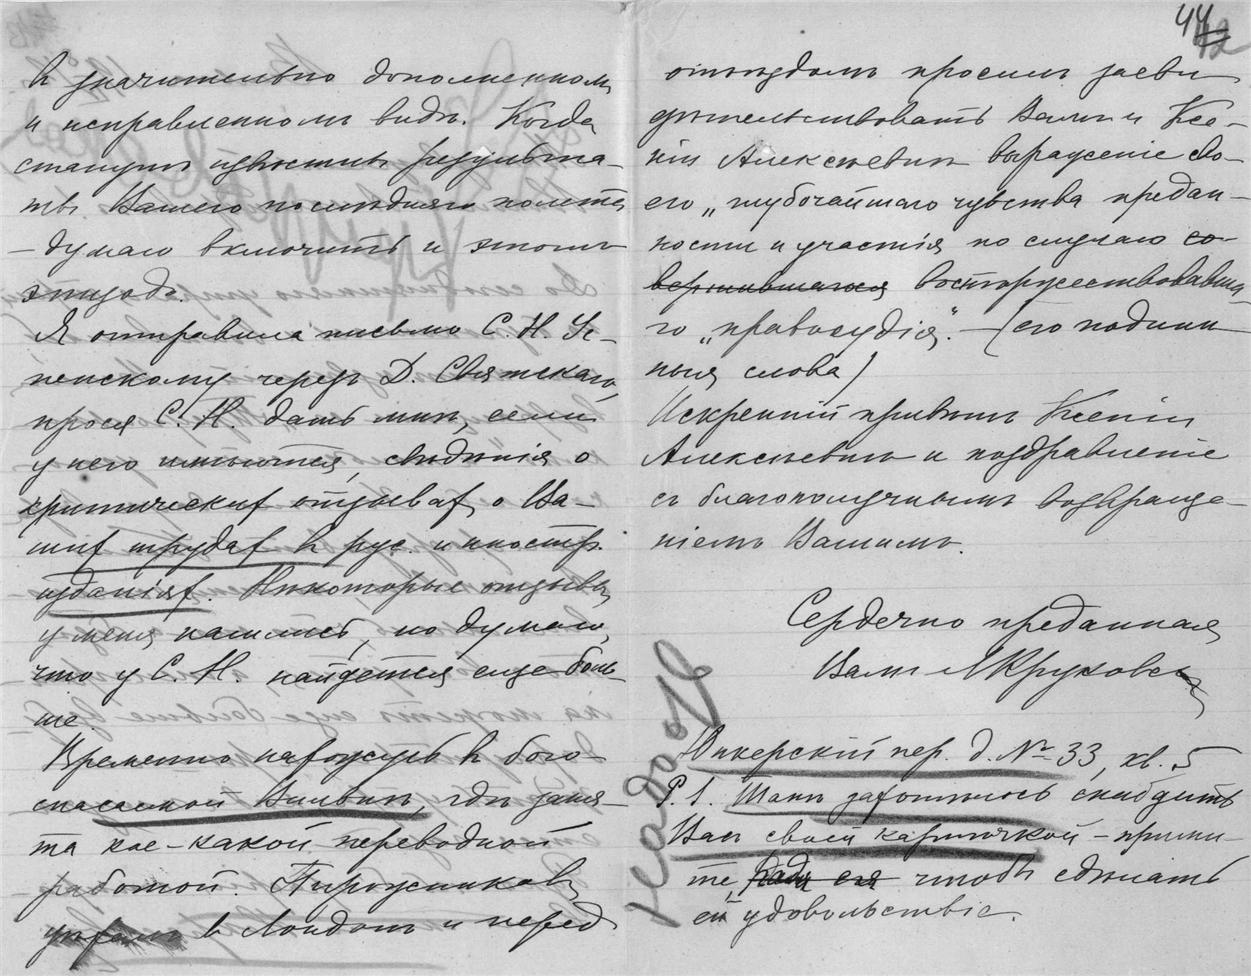 44
42
въ значительно дополненномъ
и исправленномъ видѣ. Когда
станутъ извѣстны результа-
ты Вашего послѣдняго полета
– думаю включить и этотъ
эпизодъ.
Я отправила письмо С. Н. Ус-
пенскому черезъ Д. Святскаго,
прося С. Н. дать мнѣ, если
у него имѣются, свѣдѣнія о
критическихъ отзывахъ о Ва-
шихъ трудахъ въ рус. и иностр.
изданіяхъ. Нѣкоторые отзывы
у меня нашлись, но думаю,
что у С. Н. найдется еще боль-
ше.
Временно нахожусь въ бого-
спасаемой Вильнѣ, гдѣ заня-
та кое-какой переводной
работой. Пирожников
уѣхалъ въ Лондонъ и передъ
отъѣздомъ просилъ засви
дѣтельствовать Вамъ и Ксе-
ніи Алексѣевнѣ выраженіе сво-
его „глубочайшаго чувства предан-
ности и участія по случаю со-
вершившагося восторжествовавша
го „правосудія“. – (его подлин
ныя слова)
Искренній привѣтъ Ксеніи
Алексѣевнѣ и поздравленіе
съ благополучнымъ возвраще-
ніемъ Вашимъ.
Сердечно преданная
Вамъ
P. S. захотѣлось снабдить
Васъ своей карточкой – прими-
те, ради ея чтобы сдѣлать
ей удовольствіе.